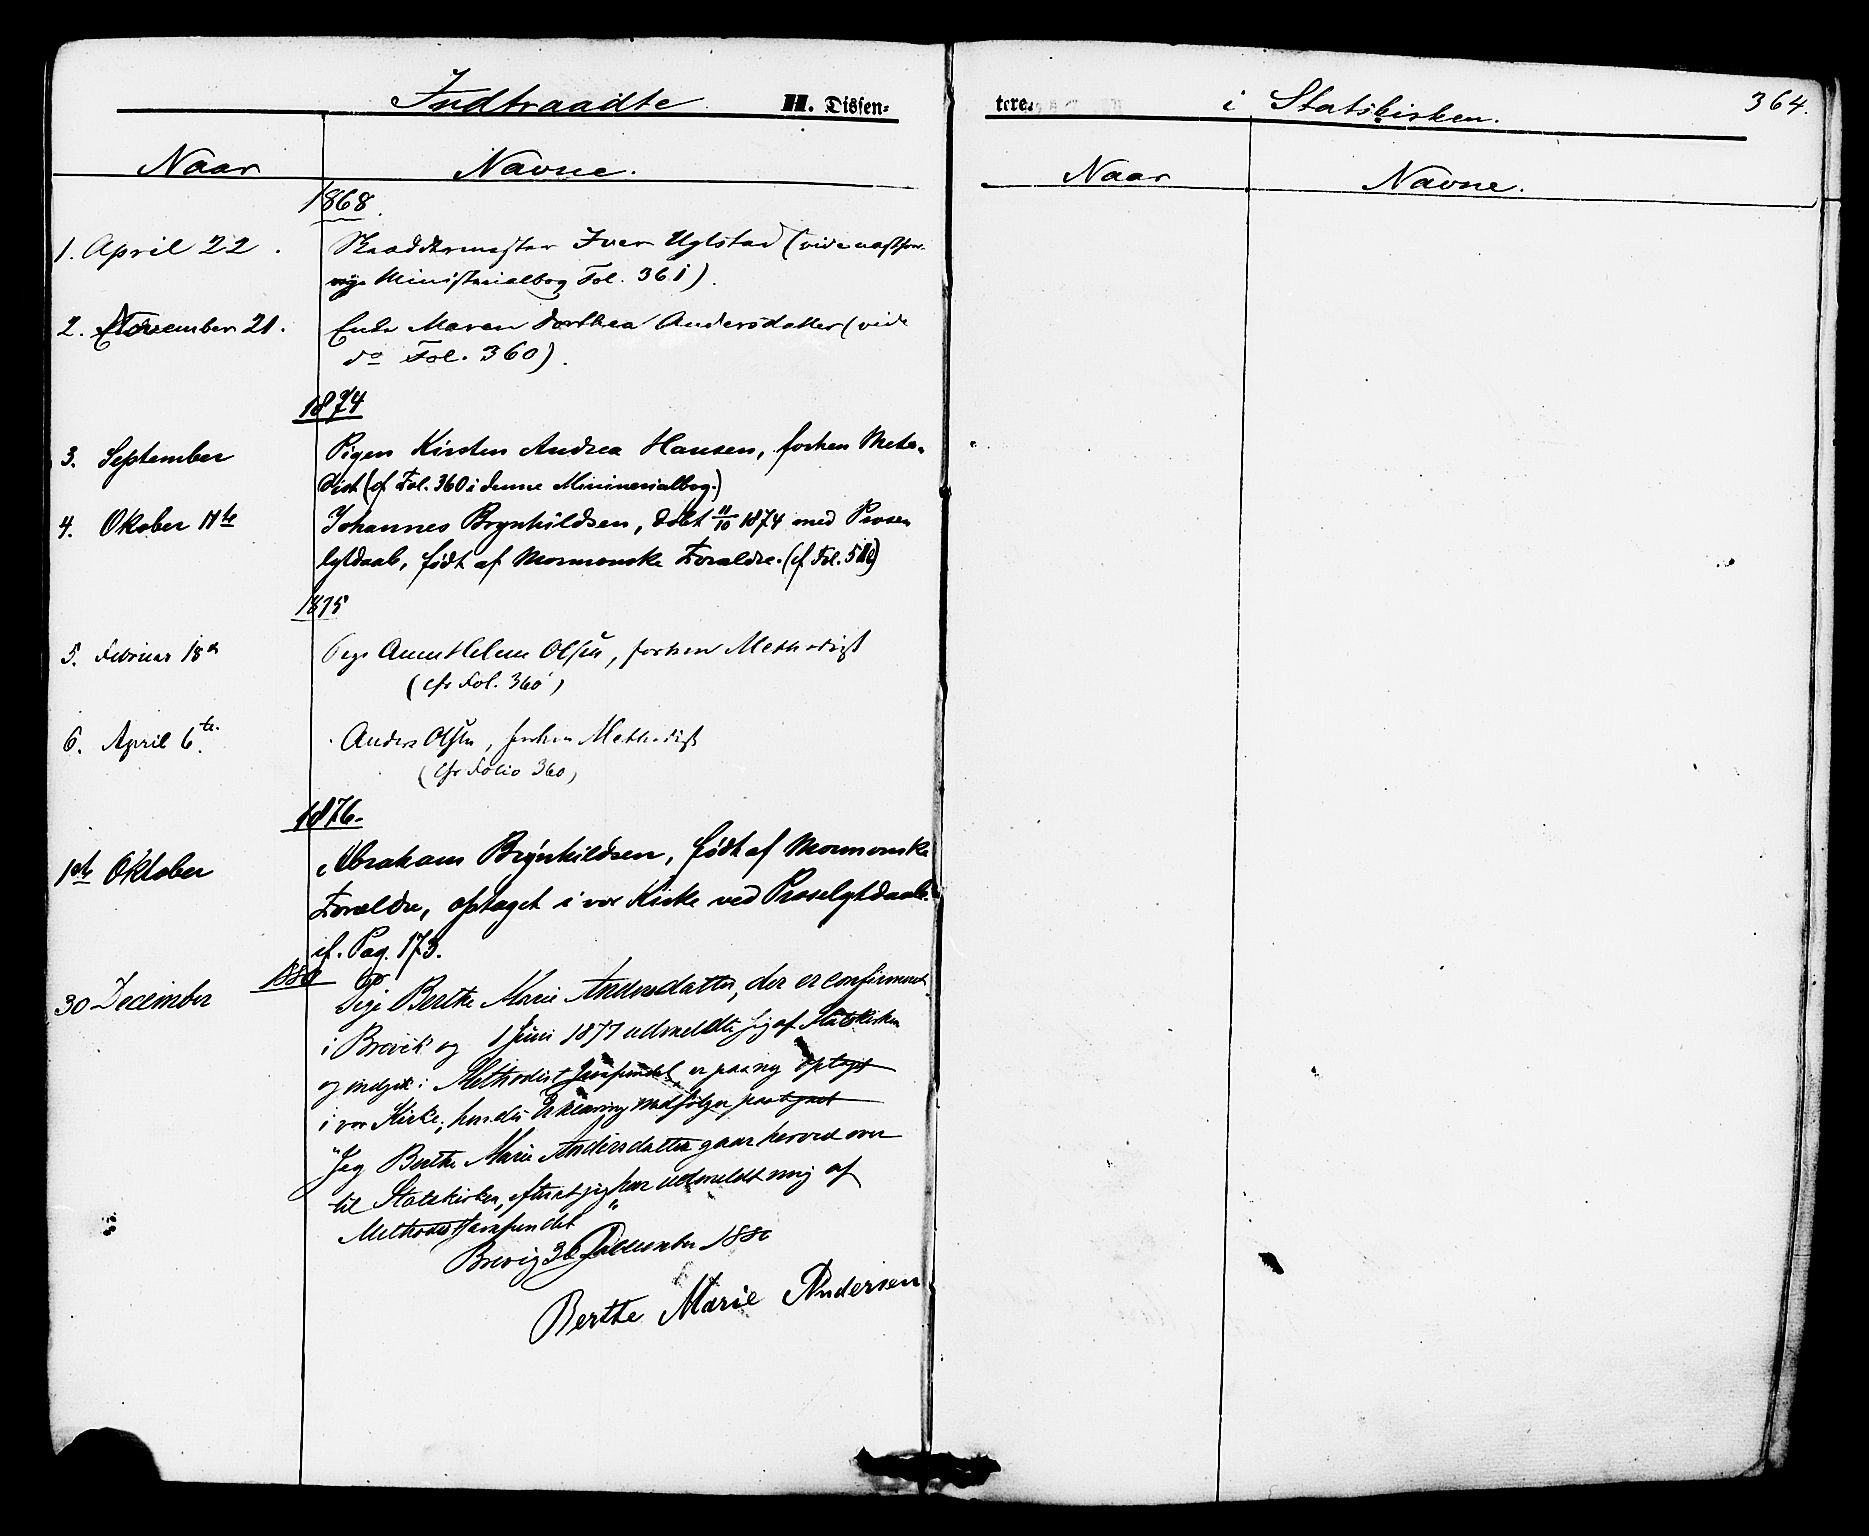 Indtraadte H. Dissen=
tere. i Statskirken. 364.
Naar Navne.
Naar Navne.
1868.
1. April 22. Skræddermester Iver Uglstad (vide
Ministerialbog Fol. 361).
2. November 21. Enke Maren Dorthea Andersdatter (vide
do Fol. 360).
1874
3. September Pigen Kirsten Andrea Hansen, forhen Meto-
dist (cf Fol. 360 i denne Ministerialbog.)
4. Oktober 11te Johannes Brynhildsen, døbt 11/10 1874 med Prose-
lytdaab, født af Mormonske Forældre. (cf Fol.
1875
5. Februar 18de Pige Anne Helene Olsen, forhen Methodist
(cfr Fol. 360)
6. April 6te. Anders Olsen, forhen Methodist
(cfr Folio 360)
1876.
1ste Oktober Abraham Brynhildsen, født af Mormonske
Forældre, optaget i vor Kirke ved Proselytdaab.
cf. Pag. 173.
1880
30 December Pige Berthe Marie Andersdatter, der er confirmeret
i Brevik og 1 Juni 1877 udmeldte sig af Statskirken
og indgik i Methodistsamfundet, er paany optaget
i vor Kirke; hendes Erklæring
"Jeg Berthe Marie Andersdatter gaar herved over
til Statskirken, efterat jeg har udmeldt mig af
Methodistsamfundet"
Brevig 30 December 1880
Berthe Marie Andersen